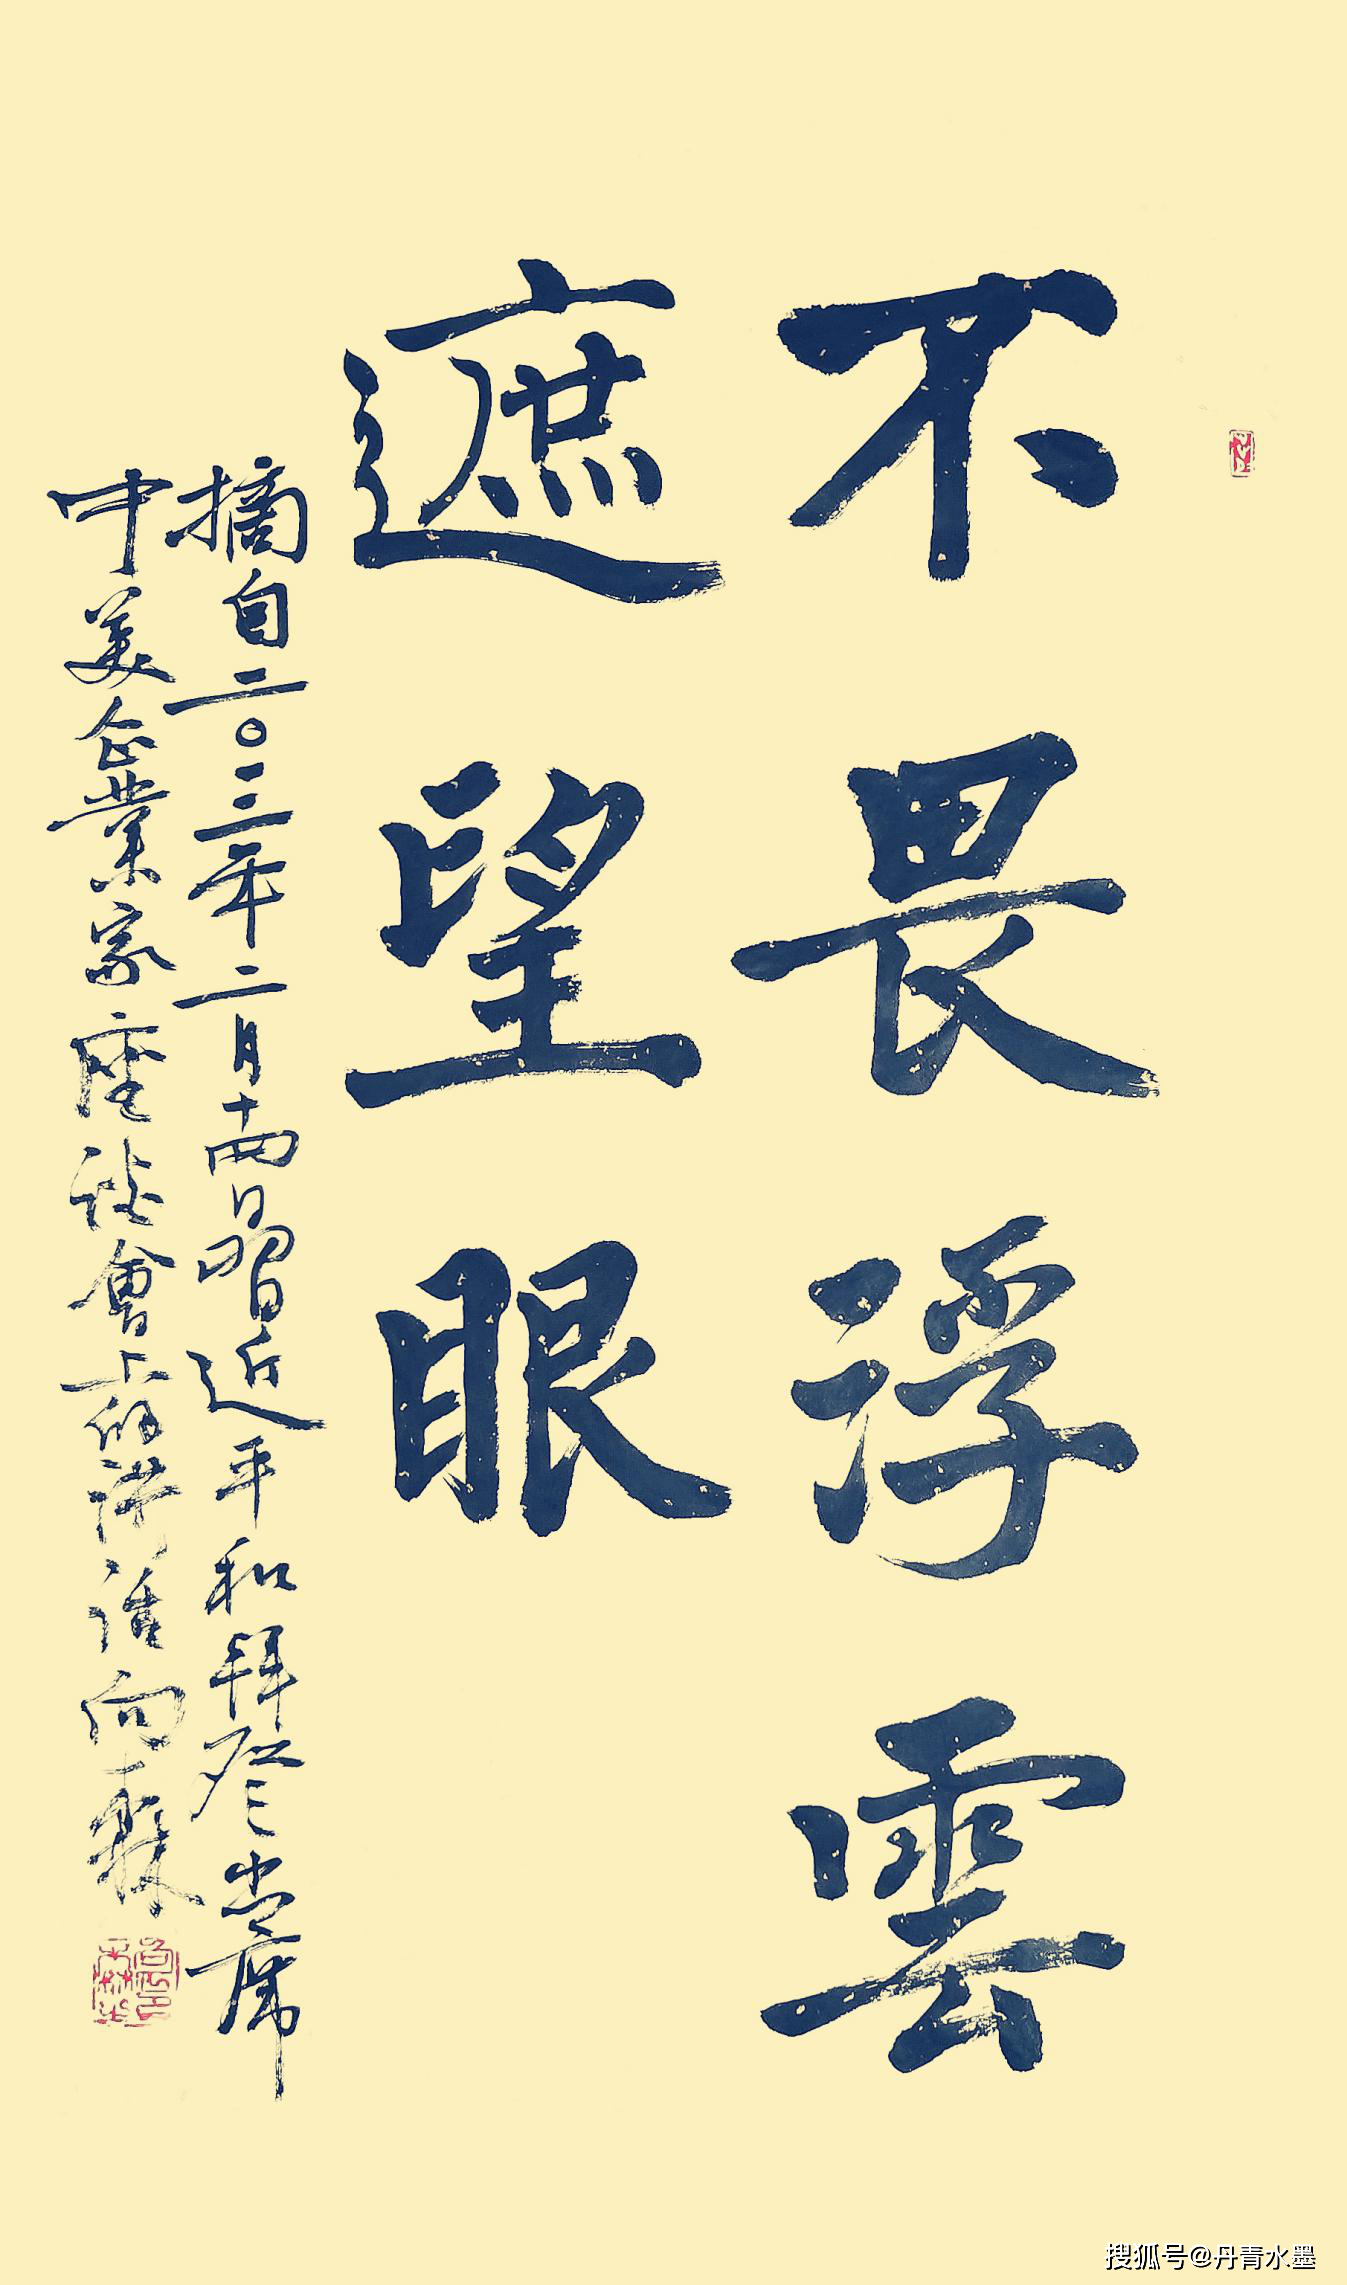 不畏浮雲
遮望眼
摘自二〇一二年二月十四日習近平和拜登出席
中美企業家座談會上的講話向
搜狐号@丹青水墨